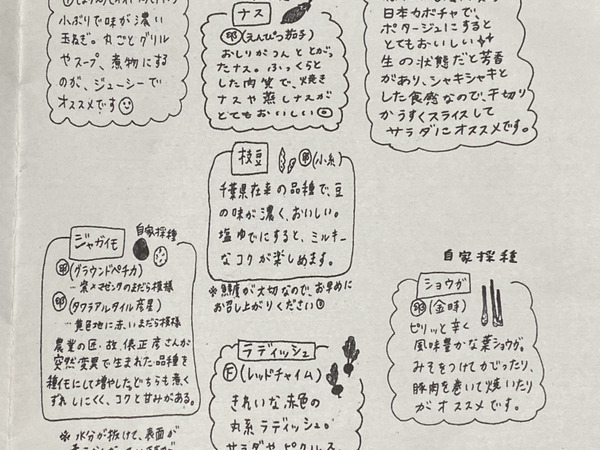 小ぶりで味が濃い
玉ねぎ。丸ごとグリル
やスープ、煮物にする
のが、ジューシーで
オススメです
ナス
固(えんぴつ茄子)
おしりがつんととがっ
たナス。ふっくらと
した肉質で、焼き
ナスや蒸しナスが
とてもおいしい
日本カボチャで、
ポタージュにすると
とてもおいしい
生の状態だと芳香
があり、シャキシャキと
した食感なので、千切り
かうすくスライスして
サラダにオススメです。
枝豆
固(小糸)
千葉県在来の品種で、豆
の味が濃く、おいしい。
塩ゆでにすると、ミルキー
なコクが楽しめます。
※鮮度が大切なので、お早めに
お召し上がりください
ジャガイモ
自家採種
固(グラウンドペチカ)
…紫×マゼンタのまだら模様
固(タワラアルタイル彦星)
…黄色地に赤いまだら模様
農業の匠・故、俵正彦さんが
突然変異で生まれた品種を
種イモにして増やした。どちらも煮く
ずれしにくく、コクと甘みがある。
※水分が抜けて、表面が
ラディッシュ
F(レッドチャイム)
きれいな赤色の
丸系ラディッシュが
サラダやピクルス
自家採種
ショウガ
固(金時)
ピリッと辛く
風味豊かな葉ショウガ。
みそをつけてかじったり、
豚肉を巻いて焼いたり
がオススメです。